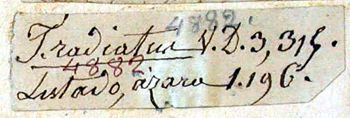 4882.
T. radiatus V. D. 3, 315.
4882
Listado, azara 1.196.